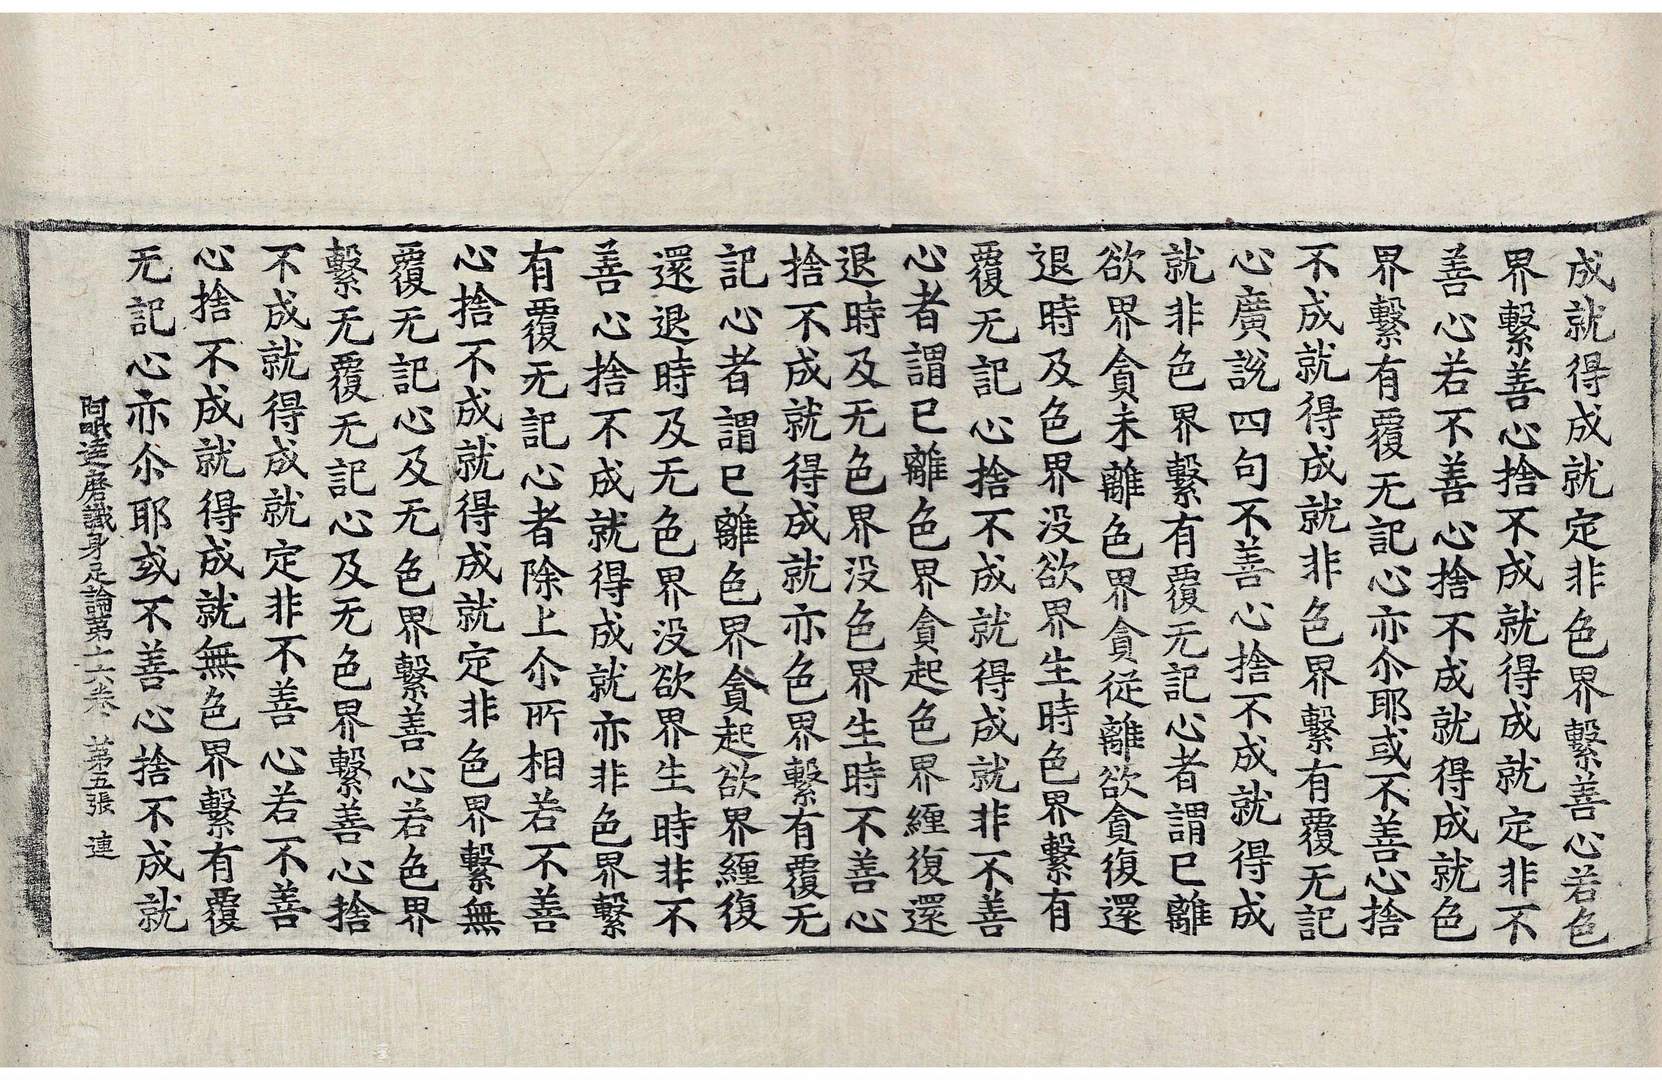 成就得成就定非色界繫善心若色
界繫善心捨不成就得成就定非不
善心若不善心捨不成就得成就色
界繫有覆无記心亦尒耶或不善心捨
不成就得成就非色界繫有覆无記
心廣說四句不善心捨不成就得成
就非色界繫有覆无記心者謂已離
欲界貪未離色界貪從離欲貪復還
退時及色界没欲界生時色界繫有
覆无記心捨不成就得成就非不善
心者謂已離色界貪起色界纏復還
退時及无色界没色界生時不善心
捨不成就得成就亦色界繫有覆无
記心者謂已離色界貪起欲界纏復
還退時及无色界没欲界生時非不
善心捨不成就得成就亦非色界繫
有覆无記心者除上尒所相若不善
心捨不成就得成就定非色界繫無
覆无記心及无色界繫善心若色界
繫无覆无記心及无色界繫善心捨
不成就得成就定非不善心若不善
心捨不成就得成就無色界繫有覆
无記心亦尒耶或不善心捨不成就
阿毗達磨識身足論第十六卷 第五張 連